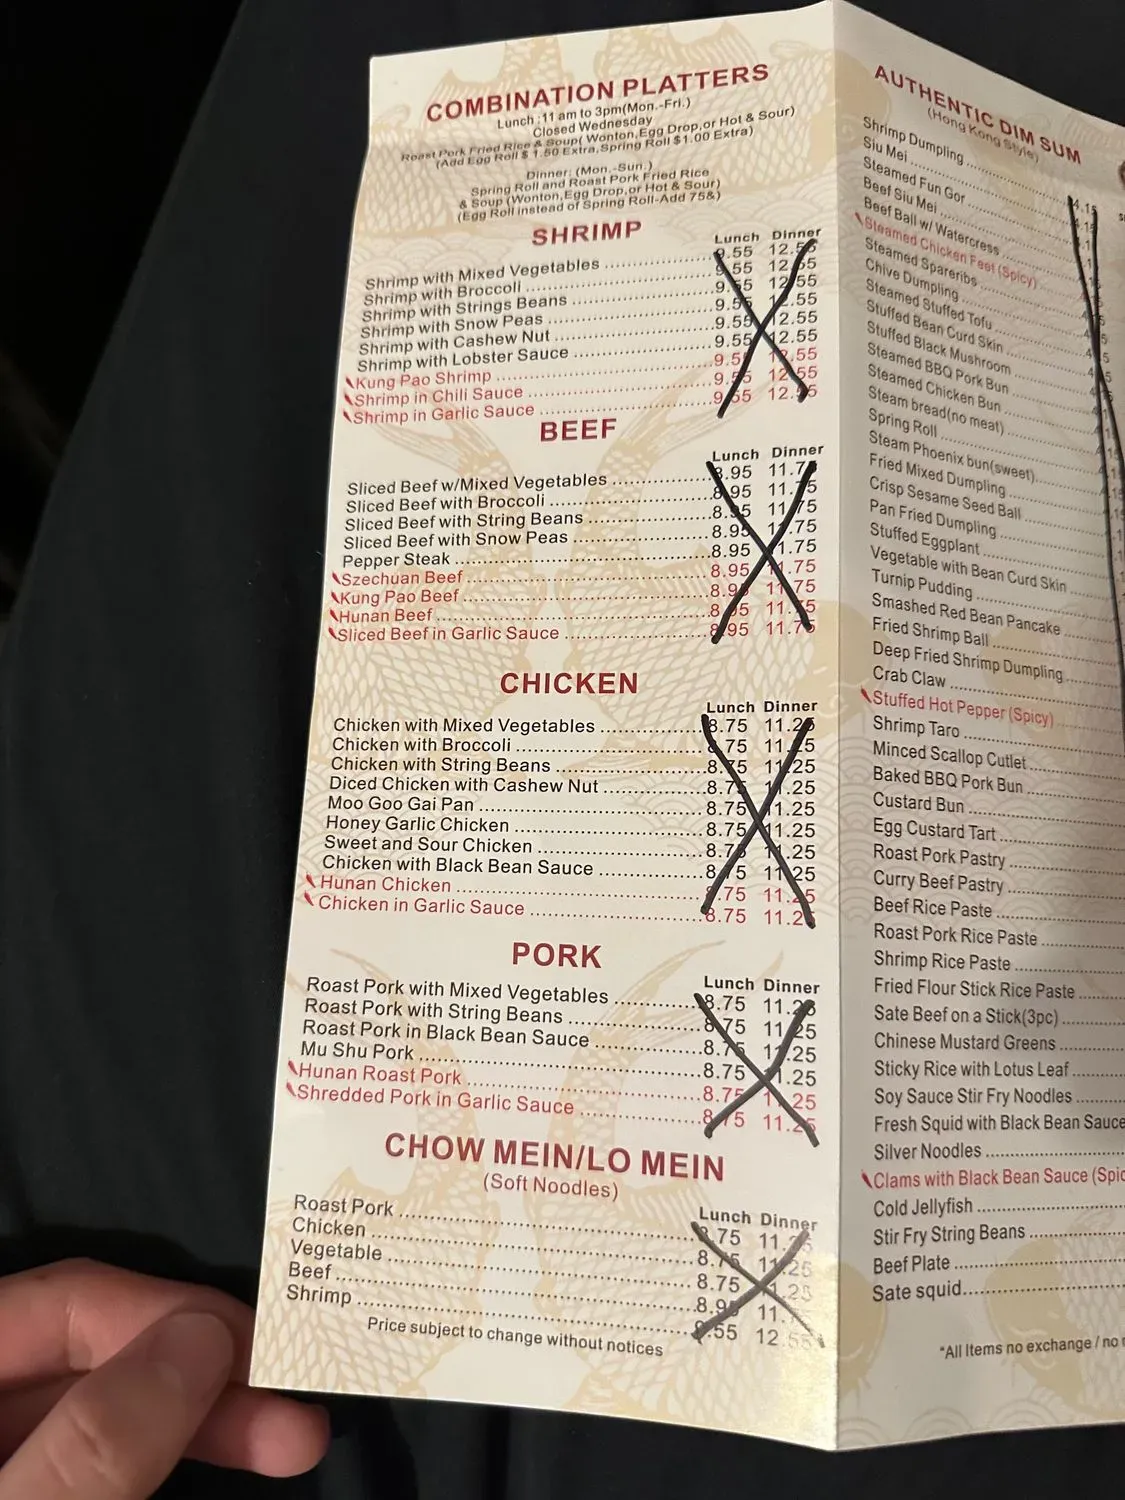 COMBINATION PLATTERS
Lunch :11 am to 3pm(Mon.-Fri.)
Closed Wednesday
Roast Pork Fried Rice & Soup( Wonton,Egg Drop,or Hot & Sour)
(Add Egg Roll $ 1.50 Extra,Spring Roll $1.00 Extra)
Dinner: (Mon.-Sun.)
Spring Roll and Roast Pork Fried Rice
& Soup (Wonton,Egg Drop,or Hot & Sour)
(Egg Roll instead of Spring Roll-Add 75&)
SHRIMP
Lunch Dinner
Shrimp with Mixed Vegetables 9.55 12.55
Shrimp with Broccoli 9.55 12.55
Shrimp with Strings Beans 9.55 12.55
Shrimp with Snow Peas 9.55 12.55
Shrimp with Cashew Nut 9.55 12.55
Shrimp with Lobster Sauce 9.55 12.55
Kung Pao Shrimp 9.55 12.55
Shrimp in Chili Sauce 9.55 12.55
Shrimp in Garlic Sauce 9.55 12.55
BEEF
Lunch Dinner
Sliced Beef w/Mixed Vegetables 8.95 11.75
Sliced Beef with Broccoli 8.95 11.75
Sliced Beef with String Beans 8.95 11.75
Sliced Beef with Snow Peas 8.95 11.75
Pepper Steak 8.95 11.75
Szechuan Beef 8.95 11.75
Kung Pao Beef 8.95 11.75
Hunan Beef 8.95 11.75
Sliced Beef in Garlic Sauce 8.95 11.75
CHICKEN
Lunch Dinner
Chicken with Mixed Vegetables 8.75 11.25
Chicken with Broccoli 8.75 11.25
Chicken with String Beans 8.75 11.25
Diced Chicken with Cashew Nut 8.75 11.25
Moo Goo Gai Pan 8.75 11.25
Honey Garlic Chicken 8.75 11.25
Sweet and Sour Chicken 8.75 11.25
Chicken with Black Bean Sauce 8.75 11.25
Hunan Chicken 8.75 11.25
Chicken in Garlic Sauce 8.75 11.25
PORK
Lunch Dinner
Roast Pork with Mixed Vegetables 8.75 11.25
Roast Pork with String Beans 8.75 11.25
Roast Pork in Black Bean Sauce 8.75 11.25
Mu Shu Pork 8.75 11.25
Hunan Roast Pork 8.75 11.25
Shredded Pork in Garlic Sauce 8.75 11.25
CHOW MEIN/LO MEIN
(Soft Noodles)
Lunch Dinner
Roast Pork 8.75 11.25
Chicken 8.75 11.25
Vegetable 8.75 11.25
Beef 8.95 11.
Shrimp 9.55 12.55
Price subject to change without notices
AUTHENTIC DIM SUM
(Hong Kong Style)
Shrimp Dumpling 4.15
Siu Mei 4.15
Steamed Fun Gor
Beef Siu Mei
Beef Ball w/ Watercress
Steamed Chicken Feet (Spicy)
Steamed Spareribs
Chive Dumpling
Steamed Stuffed Tofu
Stuffed Bean Curd Skin
Stuffed Black Mushroom
Steamed BBQ Pork Bun
Steamed Chicken Bun
Steam bread(no meat)
Spring Roll
Steam Phoenix bun(sweet)
Fried Mixed Dumpling
Crisp Sesame Seed Ball
Pan Fried Dumpling
Stuffed Eggplant
Vegetable with Bean Curd Skin
Turnip Pudding
Smashed Red Bean Pancake
Fried Shrimp Ball
Deep Fried Shrimp Dumpling
Crab Claw
Stuffed Hot Pepper (Spicy)
Shrimp Taro
Minced Scallop Cutlet
Baked BBQ Pork Bun
Custard Bun
Egg Custard Tart
Roast Pork Pastry
Curry Beef Pastry
Beef Rice Paste
Roast Pork Rice Paste
Shrimp Rice Paste
Fried Flour Stick Rice Paste
Sate Beef on a Stick(3pc)
Chinese Mustard Greens
Sticky Rice with Lotus Leaf
Soy Sauce Stir Fry Noodles
Fresh Squid with Black Bean Sauce
Silver Noodles
Clams with Black Bean Sauce (Spic
Cold Jellyfish
Stir Fry String Beans
Beef Plate
Sate squid
*All Items no exchange / no